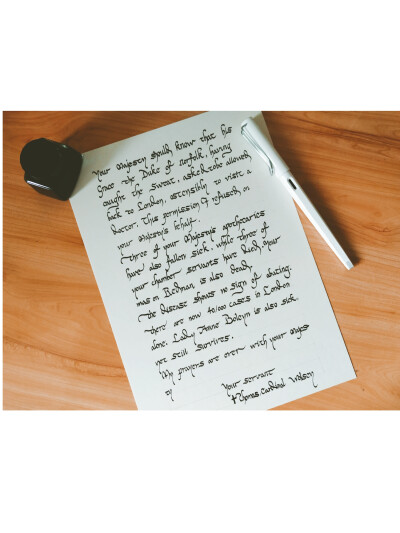 Your Majesty should know that his
Grace the Duke of Norfolk, having
caught the sweat, asked to be allowed
back to London, ostensibly to visit a
doctor. This permission I refused, on
your Majesty's behalf.
Three of your Majesty's apothecaries
have also fallen sick. while three of
your chamber servants have died. your
mason Redman is also dead.
The disease shows no sign of abating.
there are now 40,000 cases in London
alone. Lady Anne Boleyn is also sick.
yet still survives.
My prayers are over with your Majes
ty
Your servant
+Thomas. Cardinal Wolsey